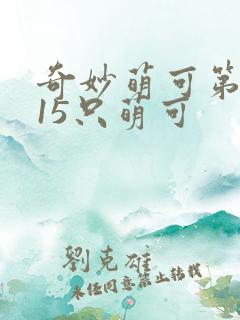 奇妙萌可第
15只萌可
劉克雄
未经同意禁止转载